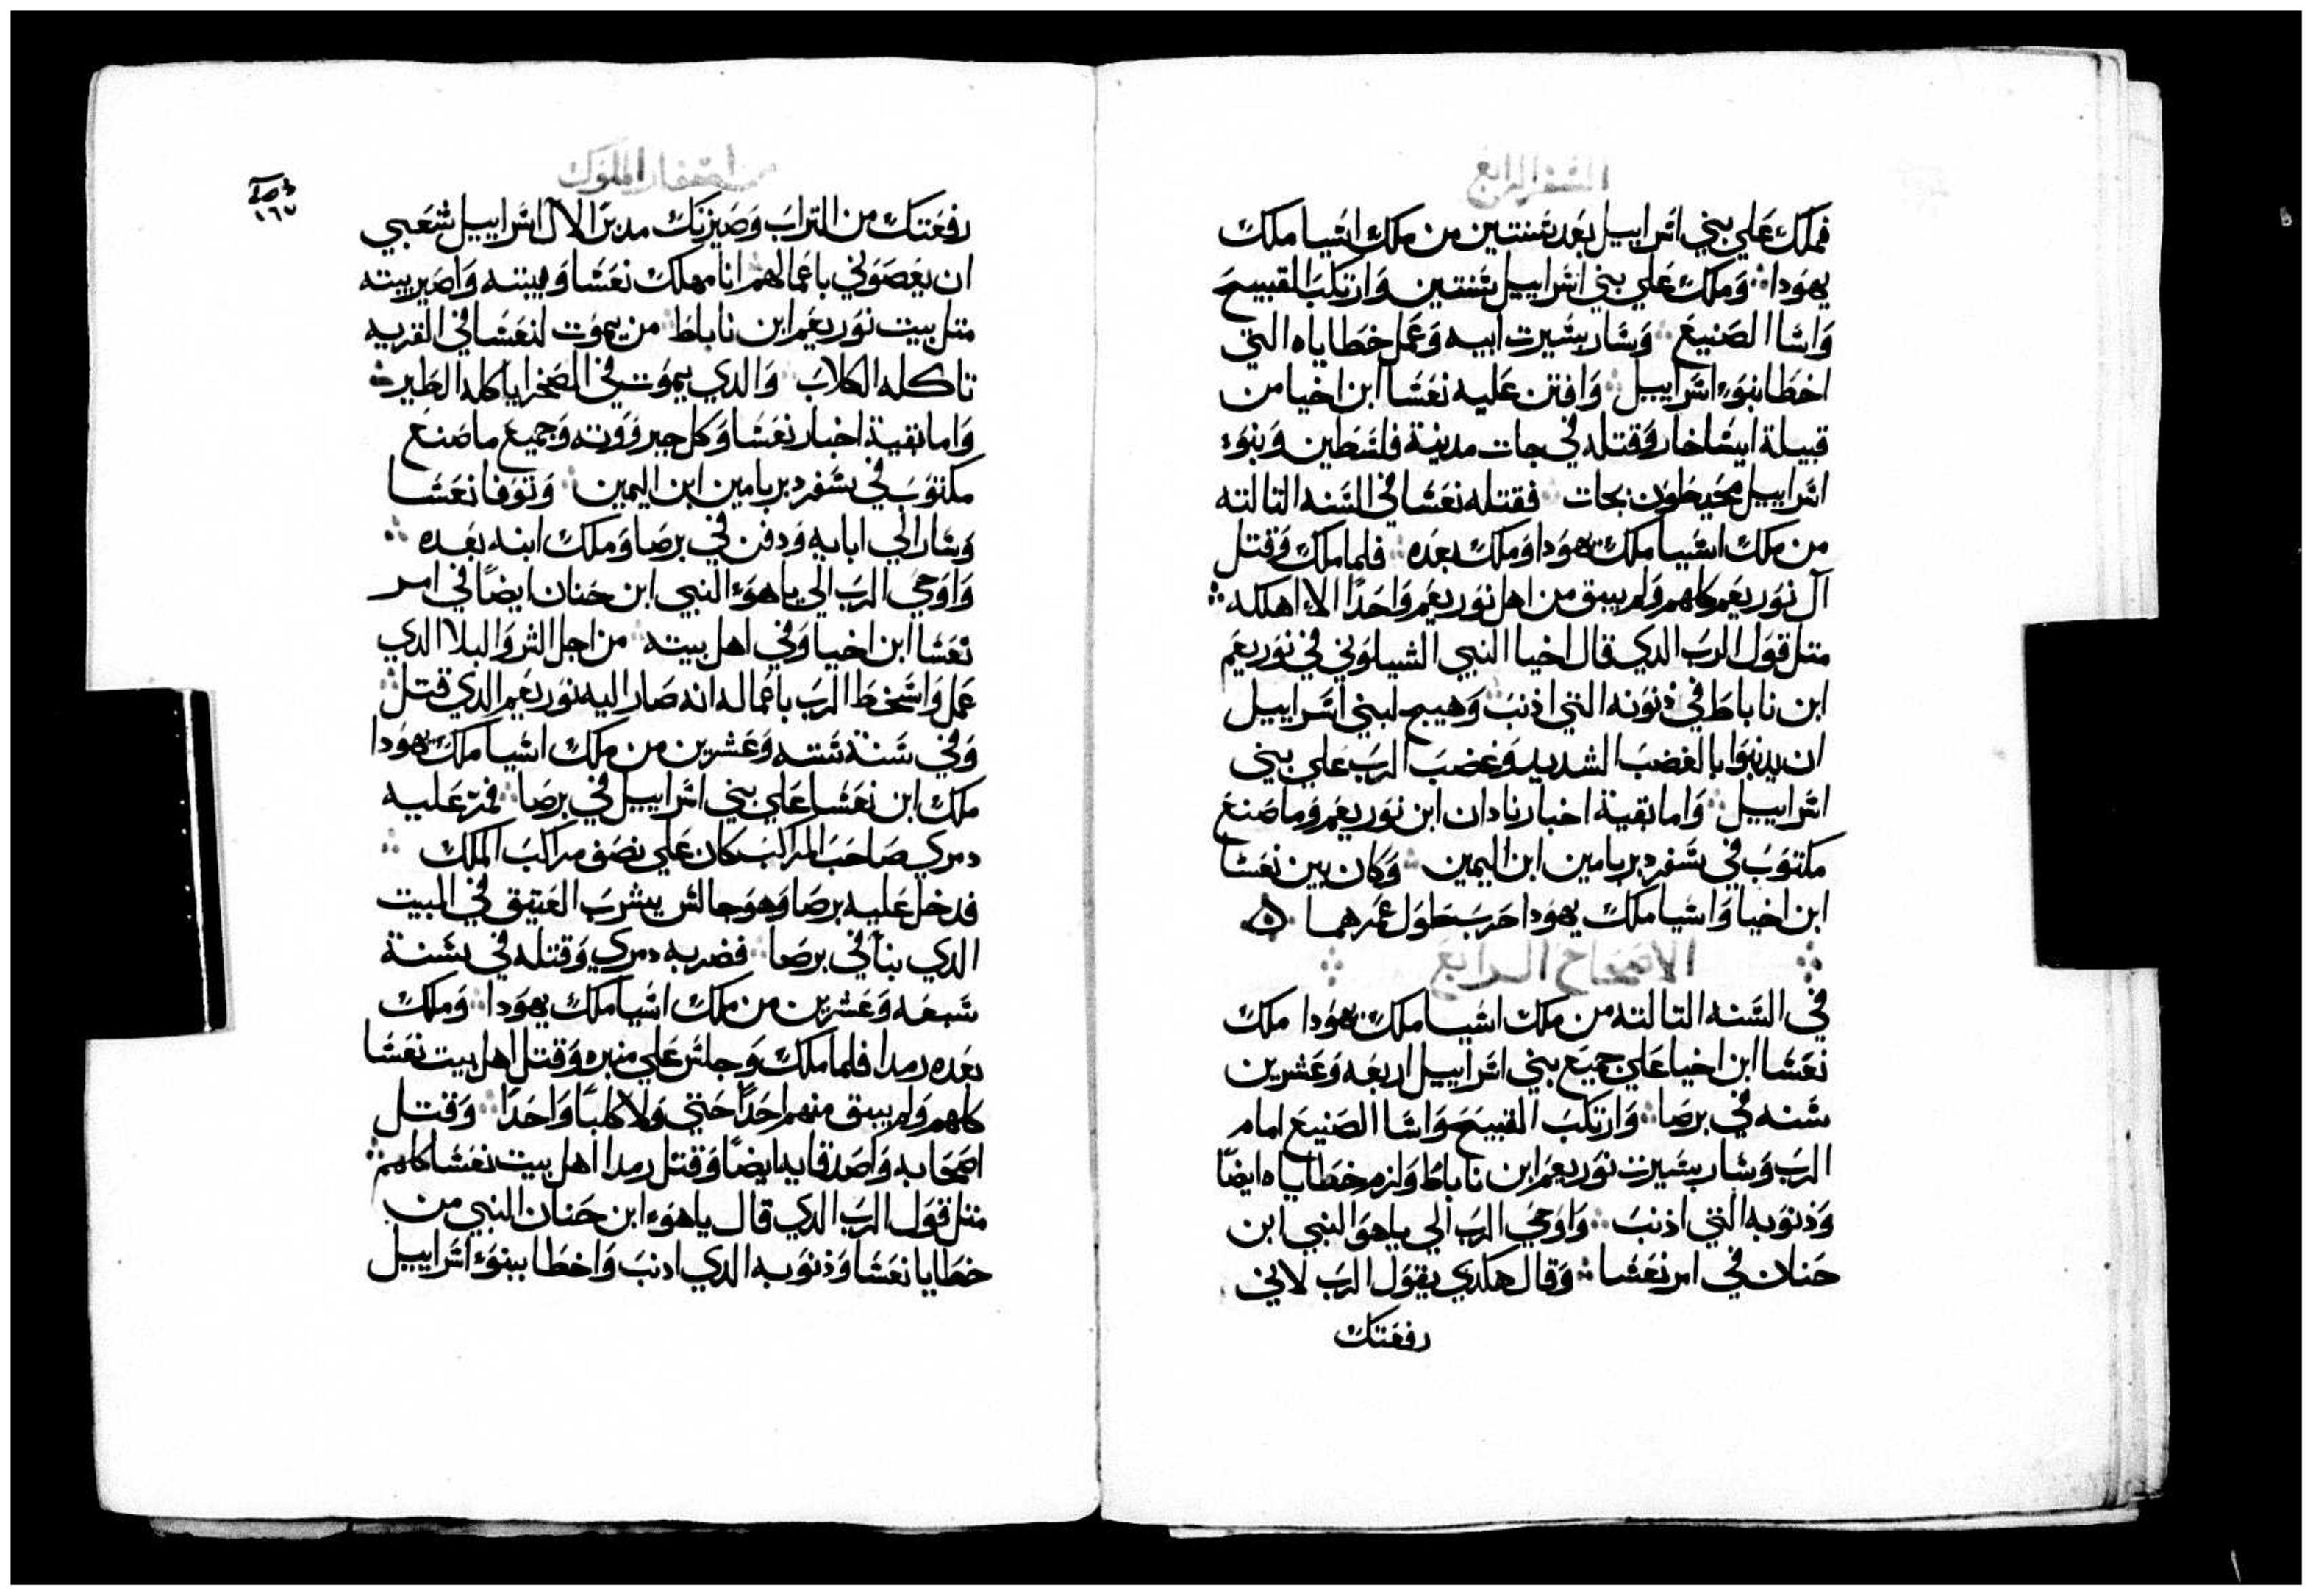 السفر الرابع
فملك علي بني اسراييل بعد سنتين من ملك اسيا ملك
يهودا وملك علي بني اسراييل سنتين وارتكب القبيح
واسا الصنيع وسار بسيرت ابيه وعمل خطاياه التي
اخطا بنوء اسراييل وافتن عليه نعشا ابن اخيا من
قبيلة ايساخار وقتله في جات مدينة فلسطين وبنوء
اسراييل محيطون بجات فقتله نعشا في السنه التالته
من ملك اسيا ملك يهودا وملك بعده فلما ملك وقتل
آل نوربعم كلهم ولم يبق من اهل نوربعم واحدًا الا اهلكه
متل قول الرب الدي قال اخيا النبي الشيلوني في نوربعم
ابن ناباط في ذنوبه التي اذنب وهيج لبني اسراييل
ان يدنبوا بالغضب الشديد وغضب الرب علي بني
اسراييل واما بقية اخبار نادان ابن نوربعم وما صنع
مكتوب في سفر دبريامين ابن اليمين وكان بين نعشا
ابن اخيا واسيا ملك يهودا حرب طول عمرهما
الاصحاح الرابع
في السنه التالته من ملك اسيا ملك يهودا ملك
نعشا ابن اخيا علي جميع بني اسراييل اربعه وعشرين
سنه في برصا وارتكب القبيح واسا الصنيع امام
الرب وسار بسيرت نوربعم ابن ناباط ولزم خطاياه ايضًا
وذنوبه التي اذنب واوحي الرب الي ياهو النبي ابن
حنان في امر نعشا وقال هكدي يقول الرب لاني
رفعتك
من اسفار الملوك
١٦٧
رفعتك من التراب وصيرتك مدبرًا لال اسراييل شعبي
ان يعصوني باعمالهم انا مهلك نعشا وبيته واصير بيته
متل بيت نوربعم ابن ناباط من يموت لنعشا في القريه
تاكله الكلاب والدي يموت في الصحرا ياكله الطير
واما بقية اخبار نعشا وكل جبرووته وجميع ما صنع
مكتوب في سفر دبريامين ابن اليمين وتوفا نعشا
وسار الي ابايه ودفن في برصا وملك ابنه بعده
واوحي الرب الي ياهوء النبي ابن حنان ايضًا في امر
نعشا ابن اخيا وفي اهل بيته من اجل الشر والبلا الدي
عمل واسخط الرب باعماله انه صار اليه نوربعم الدي قتل
وفي سنة ستة وعشرين من ملك اسيا ملك يهودا
ملك ابن نعشا علي بني اسراييل في برصا فمرّ عليه
دمري صاحب المراكب كان علي نصف مراكب الملك
فدخل عليه برصا وهو جالس يشرب العتيق في البيت
الدي بنا في برصا فضربه دمري وقتله في سنة
سبعه وعشرين من ملك اسيا ملك يهودا وملك
بعده رمدا فلما ملك وجلس علي منبره وقتل اهل بيت نعشا
كلهم ولم يبق منهم احدًا حتي ولا كلبًا واحدًا وقتل
اصحابه واصدقايه ايضًا وقتل رمدا اهل بيت نعشا كلهم
متل قول الرب الدي قال ياهوء ابن حنان النبي من
خطايا نعشا وذنوبه الدي ادنب واخطا ببنوء اسراييل